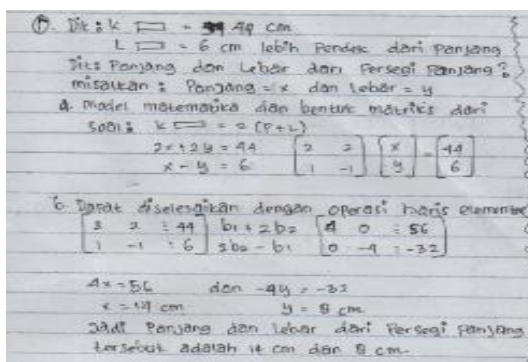 ①. Dit : k ▭ = 44 cm
L ▭ = 6 cm lebih Pendek dari Panjang
Dit : Panjang dan Lebar dari Persegi Panjang?
misalkan : Panjang = x dan lebar = y
a. model matematika dan bentuk matriks dari
soal : k ▭ = 2 (P+L)
2x + 2y = 44 [2 2; 1 -1] [x; y] = [44; 6]
x - y = 6
b. Dapat diselesaikan dengan operasi baris elementer
[2 2 : 44; 1 -1 : 6] b1 + 2b2, 2b2 - b1 [4 0 : 56; 0 -4 : -32]
4x = 56 dan -4y = -32
x = 14 cm y = 8 cm
Jadi Panjang dan lebar dari Persegi Panjang
tersebut adalah 14 cm dan 8 cm.